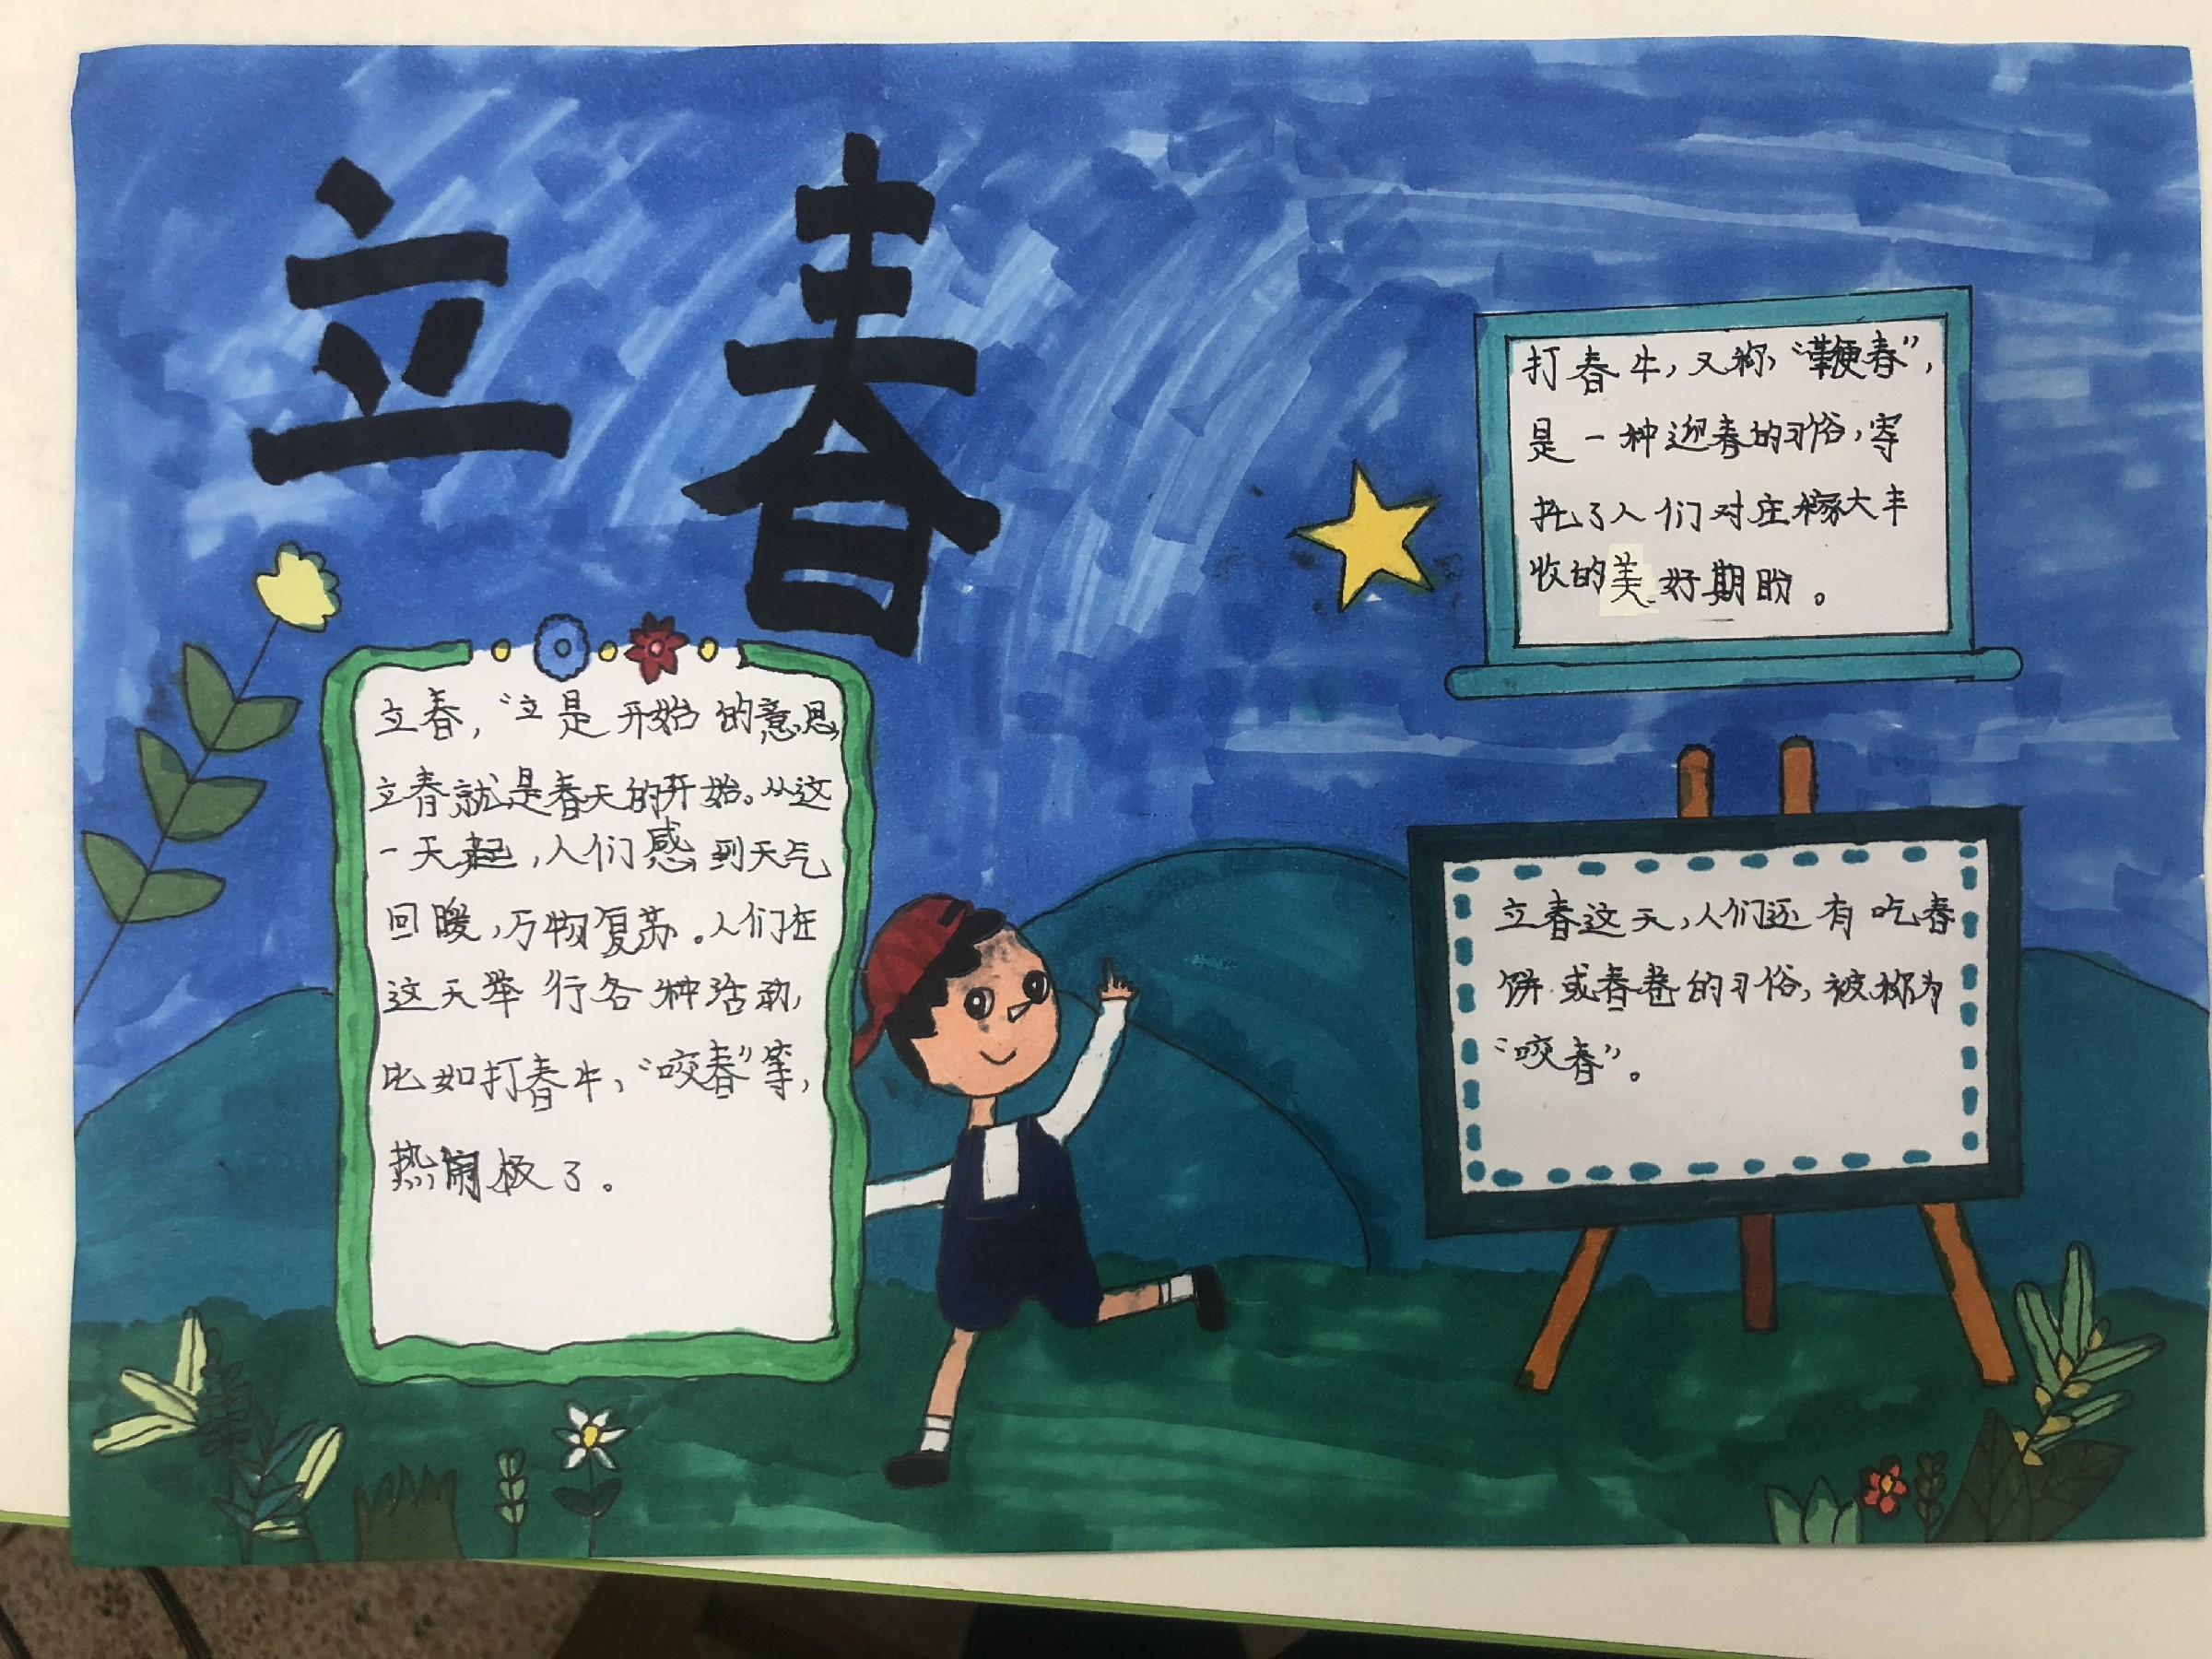 立春
立春，“立是开始的意思，
立春就是春天的开始。从这
一天起，人们感到天气
回暖，万物复苏。人们在
这天举行各种活动，
比如打春牛，“咬春”等，
热闹极了。
打春牛，又称，“鞭春”，
是一种迎春的习俗，寄
托了人们对庄稼大丰
收的美好期盼。
立春这天，人们还有吃春
饼或春卷的习俗，被称为
“咬春”。